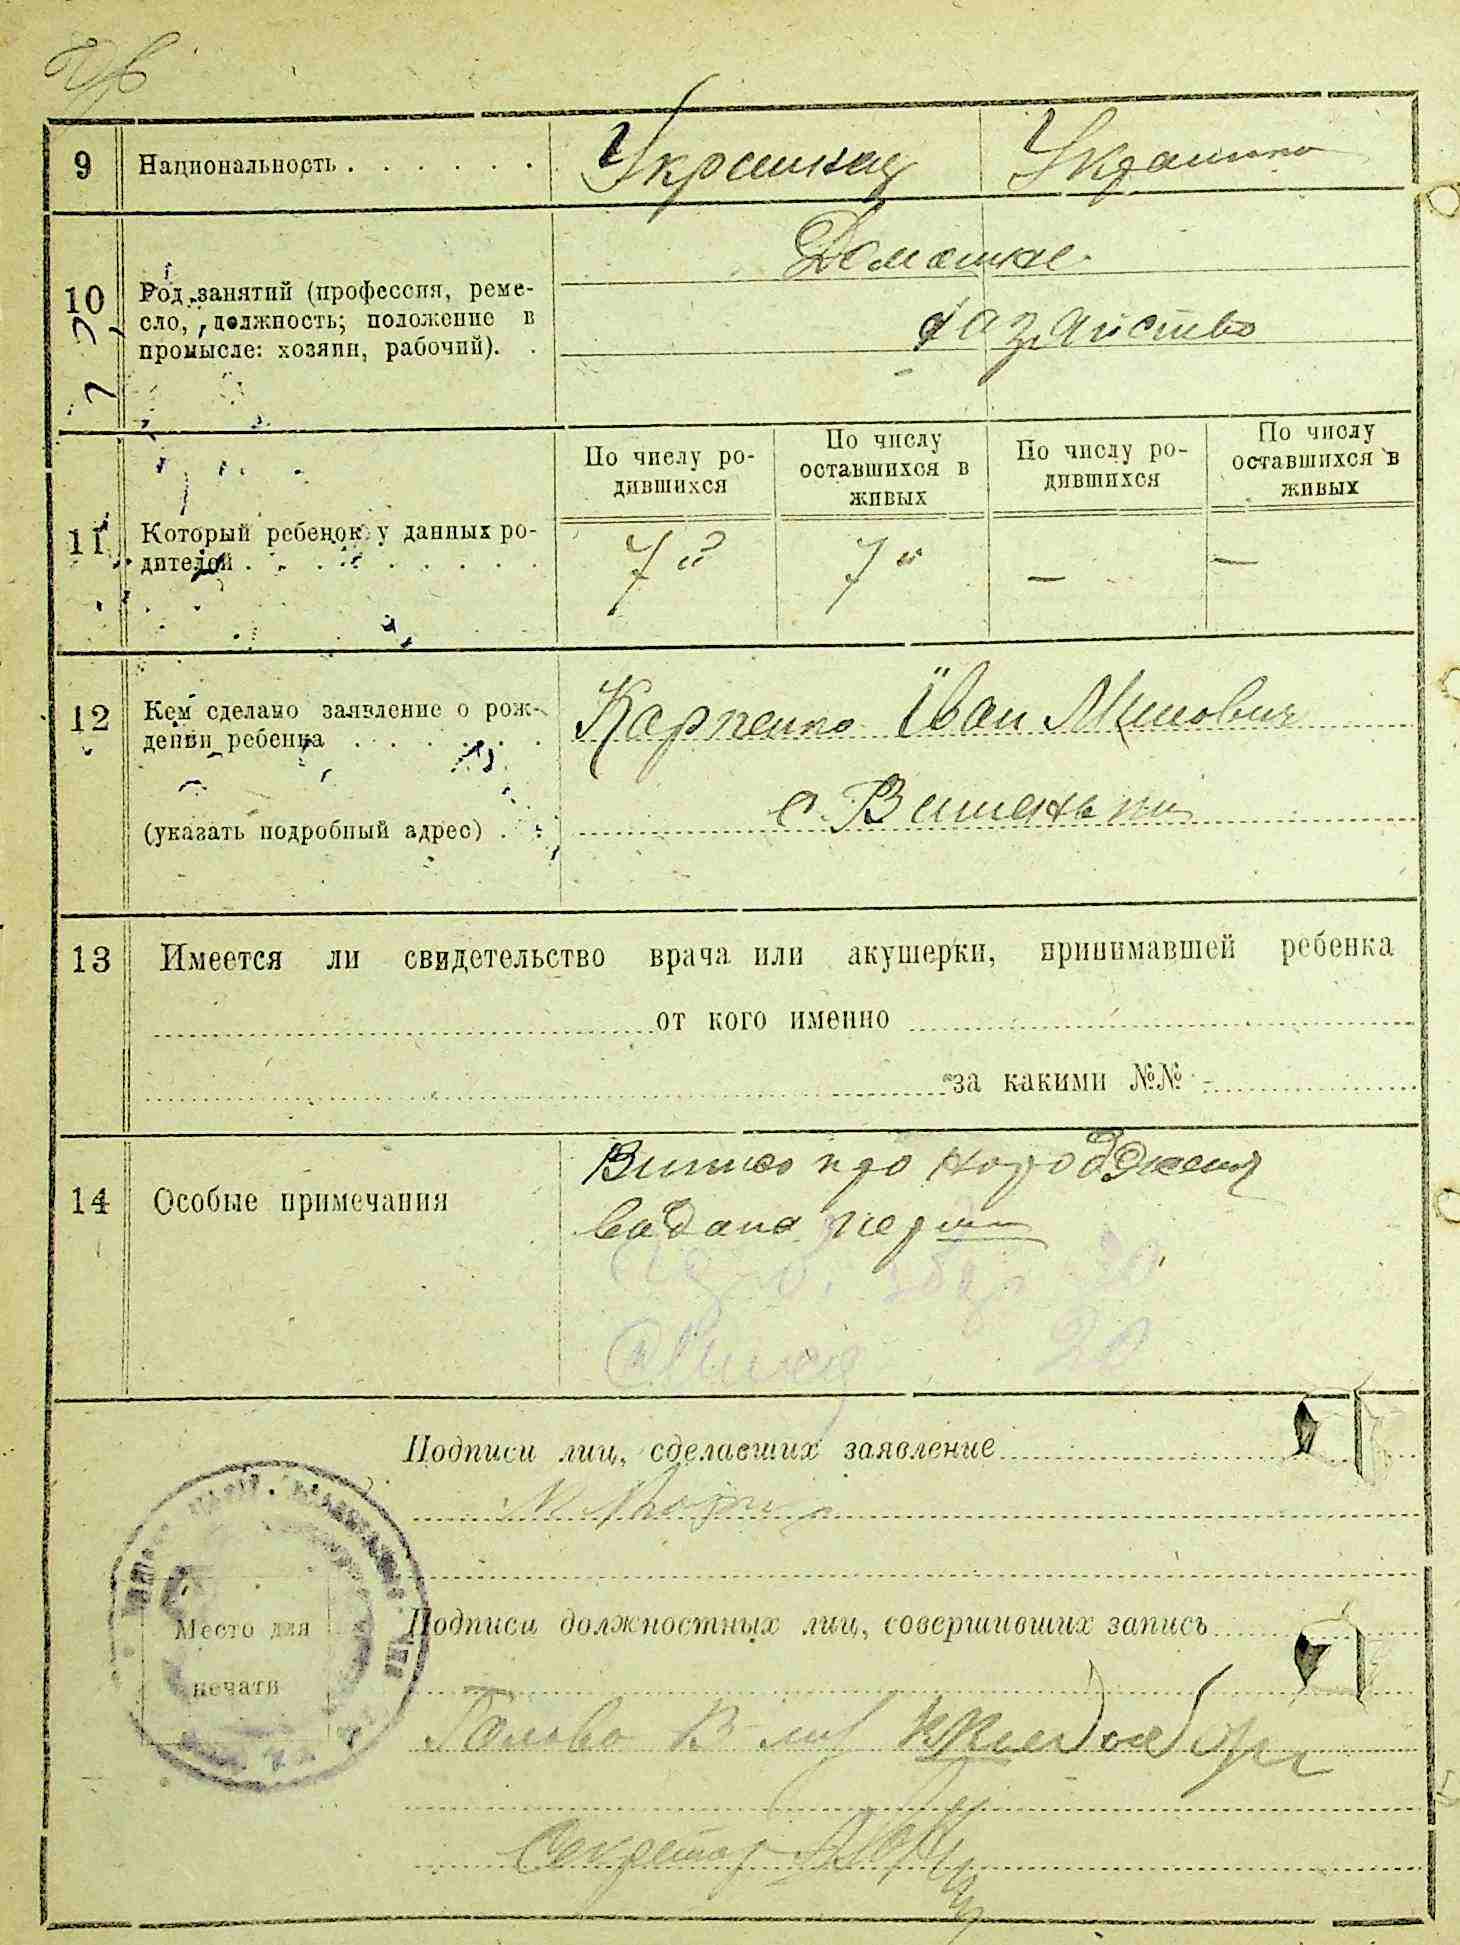 9 Национальность . . . . . . Украинец Украинка
10 Род занятий (профессия, реме-
сло, должность; положение в
промысле: хозяин, рабочий). .
Домашнє
газяйство
По числу ро-
дившихся
По числу
оставшихся в
живых
По числу ро-
дившихся
По числу
оставшихся в
живых
11 Который ребенок у данных ро-
дителей . . . . . . . . . .
7й 7й — —
12 Кем сделано заявление о рож-
дении ребенка . . . . . .
(указать подробный адрес) . .
Карпенко Іван Минович
с. Вишеньки
13 Имеется ли свидетельство врача или акушерки, принимавшей ребенка
от кого именно
за какими №№
14 Особые примечания
Випис про народження
видана
20
20
Подписи лиц, сделавших заявление
Место для
печати
Подписи должностных лиц, совершивших запись
Голова
Секретар